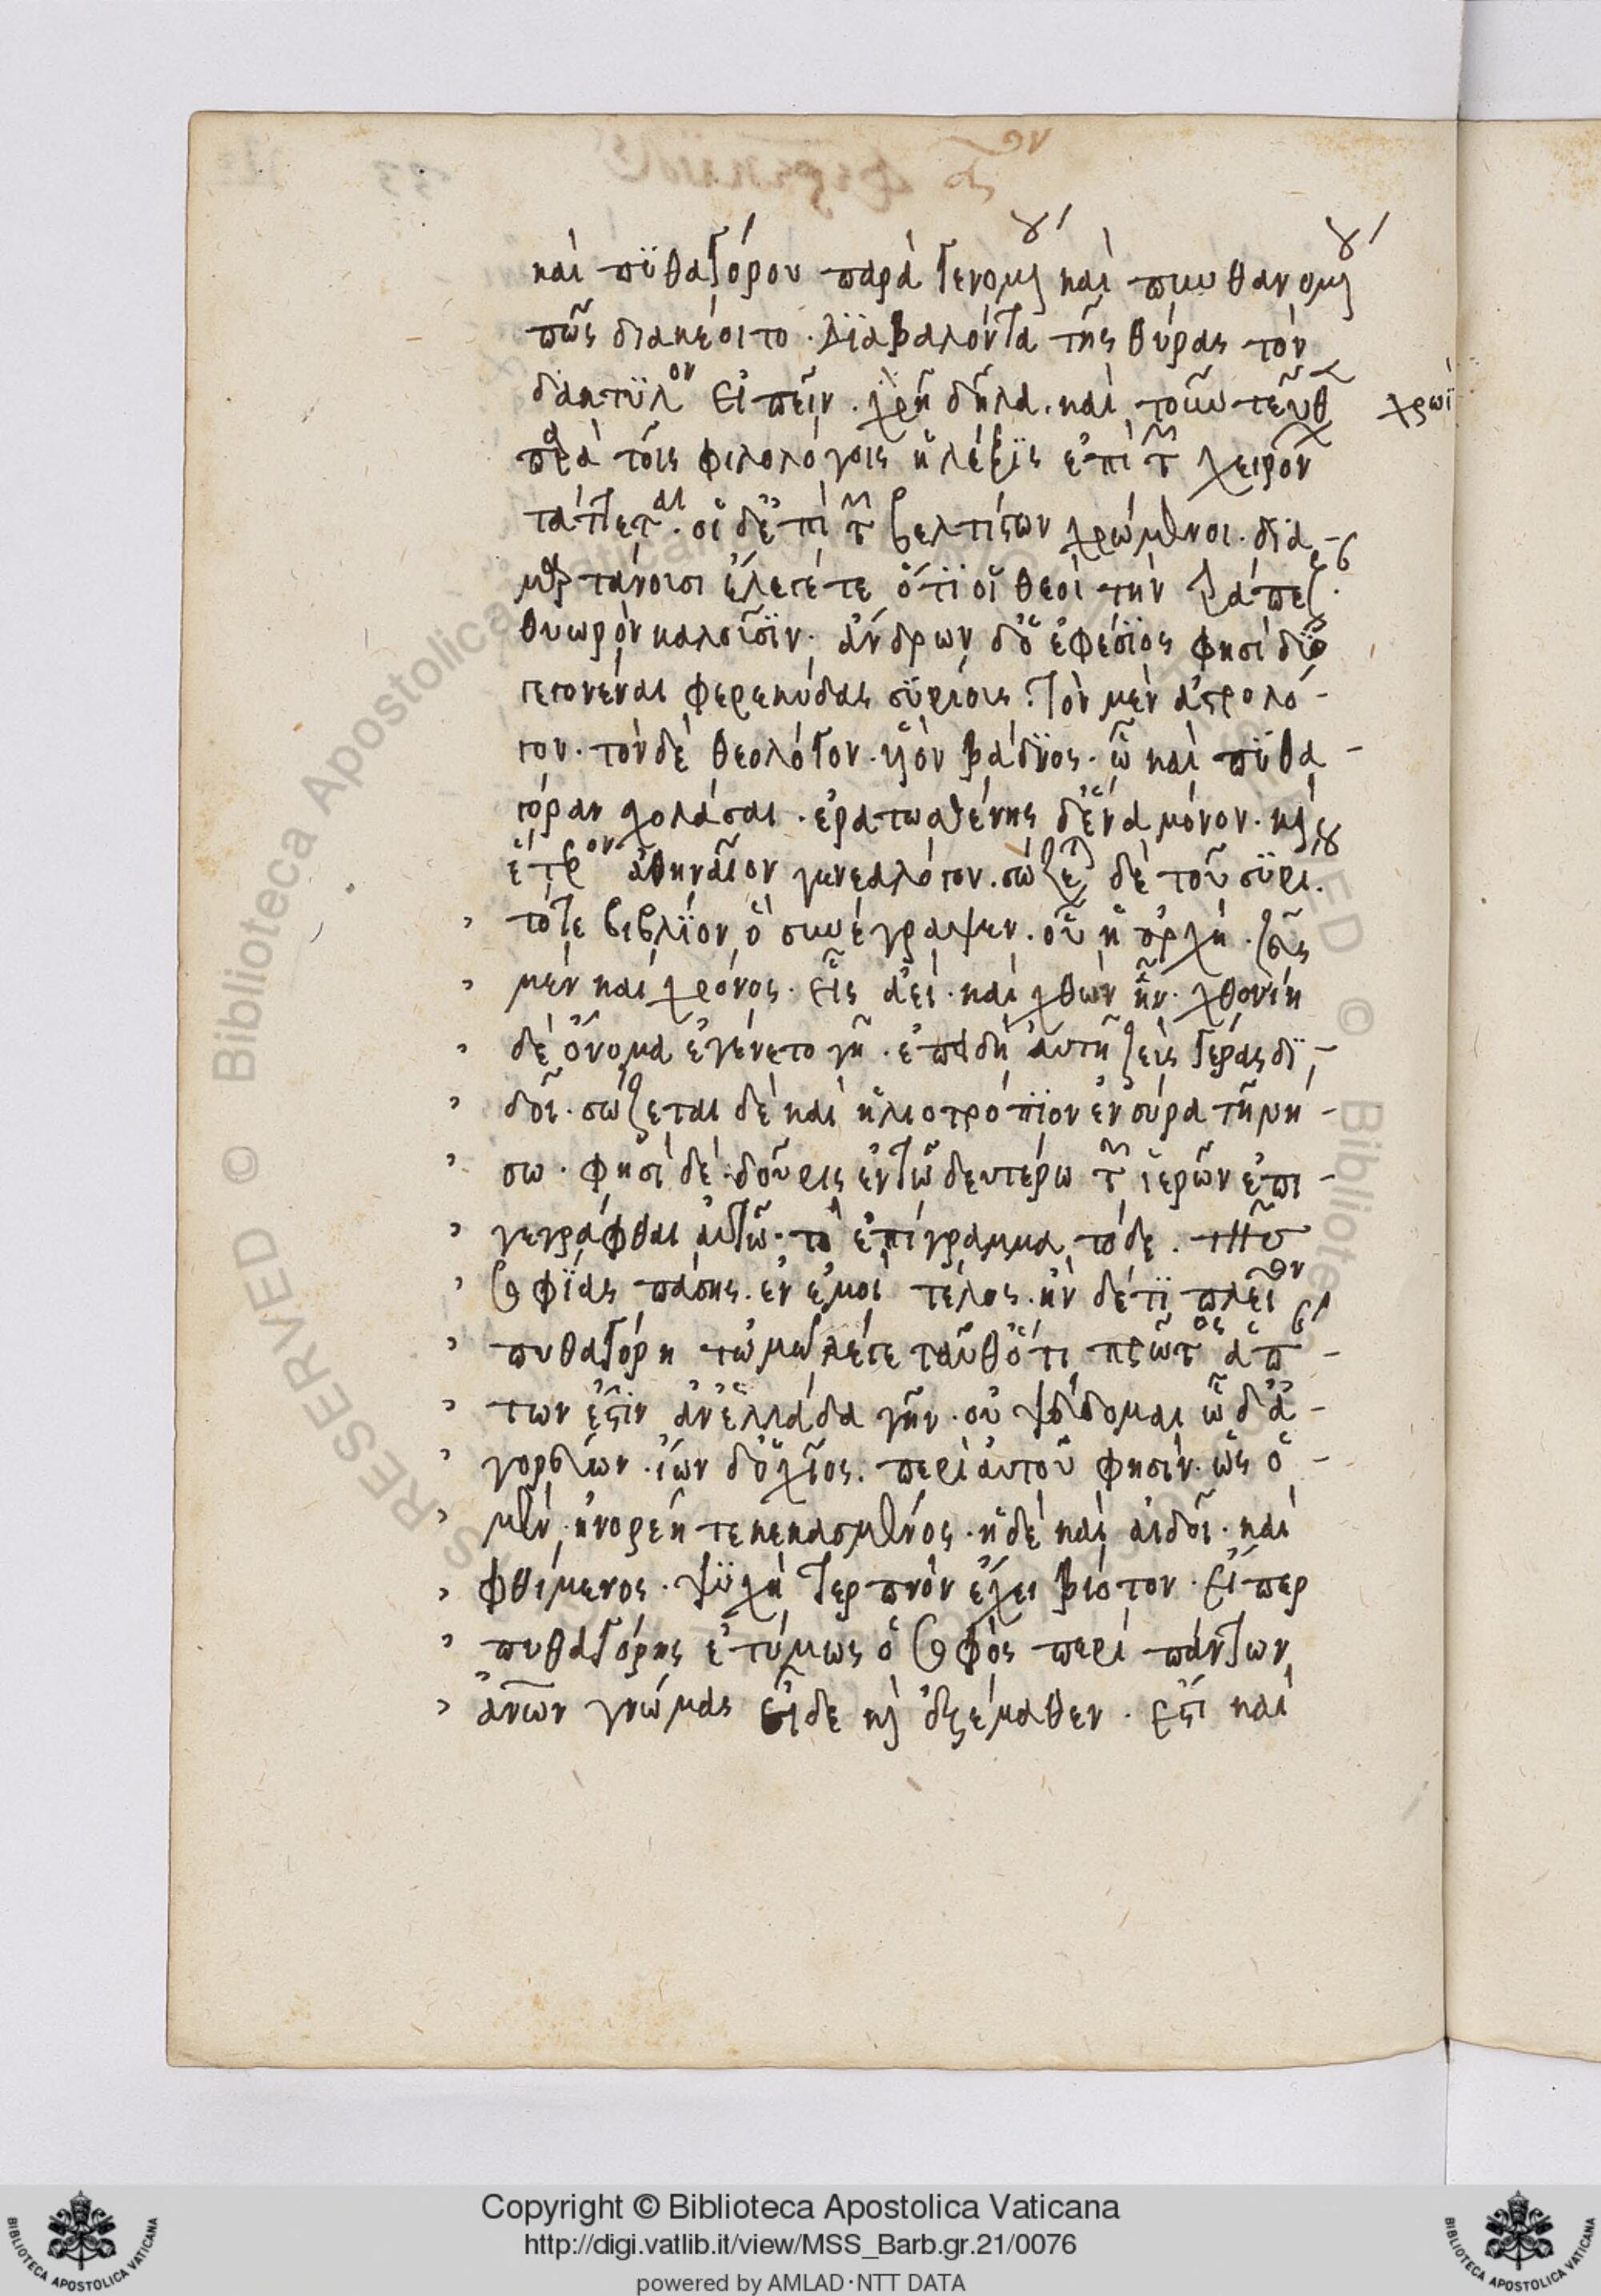 καὶ πϋθαγόρου παρὰ γενομένου καὶ πυνθανομένου
πῶς διακέοιτο. διαβαλόντα τῆς θύρας τὸν
δάκτϋλον εἰπεῖν. χρῆ δῆλα. καὶ τοὐντεῦθ
χρωῒ
παρὰ τοῖς φιλολόγοις ἡ λέξϊς ἐπὶ τῶν χειρόνων
τάττεται. οἱ δ' ἐπὶ τῶν βελτίστων χρώμενοι. δϊα-
μαρτάνουσι ἔλεγέ τε ὅτϊ οἱ θεοὶ τὴν τράπεζ
θυωρὸν καλοῦσϊν. ἄνδρων δ' ὁ ἐφέσϊος φησὶ δύο
γεγονέναι φερεκύδας σϋρίους. τὸν μὲν ἀστρολό-
γον. τὸν δὲ θεολόγον. υἱὸν βάδϋος. ὧ καὶ πϋθα-
γόραν σχολάσαι. ἐρατωσθένης δ' ἕνα μόνον. καὶ
ἕτερον ἀθηναῖον γενεαλόγον. σώζεται δὲ τοῦ σϋρίου
τό τε βιβλϊον ὃ συνέγραψεν. οὗ ἡ ἀρχή. ζὰς
μὲν καὶ χρόνος. εἷς ἀεὶ. καὶ χθὼν ἦν. χθονίη
δὲ ὄνομα ἐγένετο γῆ. ἐπειδὴ αὐτῆ ζεὺς γέρας δϊ-
δοῖ. σώζεται δὲ καὶ ἡλιοτρόπϊον ἐν σύρα τῆ νή-
σω. φησὶ δὲ δοῦρις ἐν τῶ δευτέρω τῶν ἱερῶν ἐπι-
γεγράφθαι αὐτῶ. τὸ ἐπίγραμμα τόδε. τῆς
σοφϊάς πάσης. ἐν ἐμοὶ τέλος. ἢν δέ τϊ πλεῖον
πυθαγόρη τὠμῶ λέγε ταῦθ' ὅτι πρῶτος ἁπάν-
των ἐστϊν ἀν' ἑλλάδα γῆν. οὐ ψεύδομαι ὧδ' ἀ-
γορεύων. ἴων δ' ὁ χῖος. περὶ αὐτοῦ φησίν. ὣς ὁ
μὲν. ἠνορέη τε κεκασμένος. ἠδὲ καὶ αἰδοῖ. καὶ
φθίμενος. ψϋχῆ τερπνὸν ἔχει βίοτον. εἴπερ
πυθαγόρης ἐτύμως ὁ σοφὸς περὶ πάντων
ἀνων γνώμας εἶδε καὶ ἐξέμαθεν. ἔστι καὶ
Copyright © Biblioteca Apostolica Vaticana
http://digi.vatlib.it/view/MSS_Barb.gr.21/0076
powered by AMLAD·NTT DATA